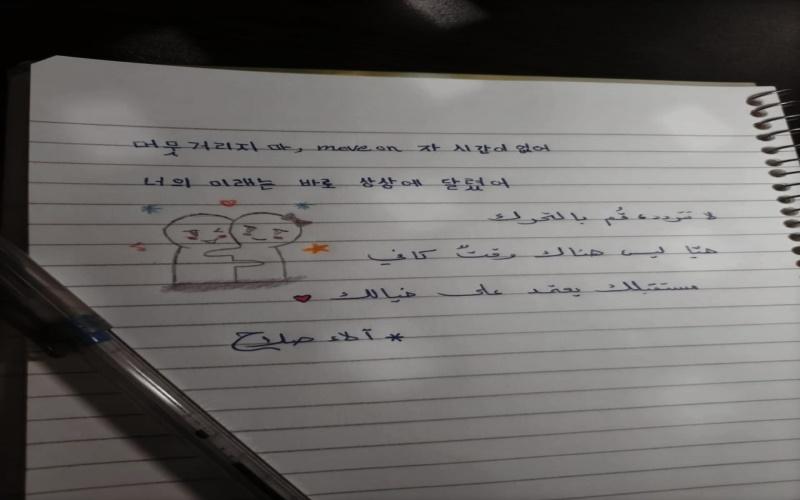 머뭇거리지 마, move on 자 시간이 없어
너의 미래는 바로 상상에 달렸어
لا تتردد، قُم بالتحرك
هيّا ليس هناك وقتٌ كافي
مستقبلك يعتمد على خيالك
* آلاء صلاح